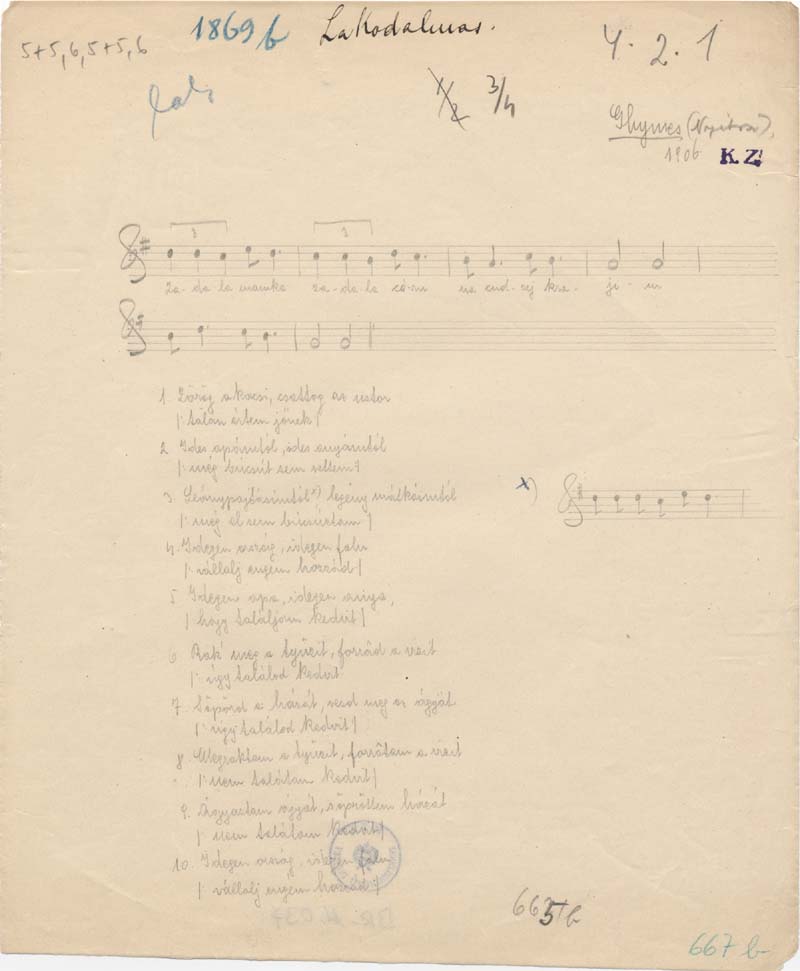 5+5, 6, 5+5, 6
1869 b
Lakodalmas.
4. 2. 1
1/2 3/4
Ghymes (Nyitra),
1906 K. Z!
3 3
za-da-la mamka za-da-la
1. Zörög a kocsi, csattog az ostor
|: talán értem jőnek :|
2. Ides apámtól, ides anyámtól
|: még bucsút sem vettem :|
3. Leánypajtásimtól x) legény
|: még el sem bucsúztam :|
4. Idegen ország, idegen falu
|: vállalj engem hozzád :|
5. Idegen apa, idegen anya,
|: hogy találjam kedvit :|
6. Rak' meg a tyüzit, forrâd a vizit
|: úgy találod kedvit
7. Söpörd a házát, vesd meg az ágyát
|: úgy találod kedvit :|
8. Megraktam a tyüzit, forrôtam a vizit
|: nem találtam kedvit :|
9. Ágyaztam ágyát, söpröttem házát
|: nem találtam kedvit :|
10. Idegen ország, idegen falu
|: vállalj engem hozzád :|
x)
667 b